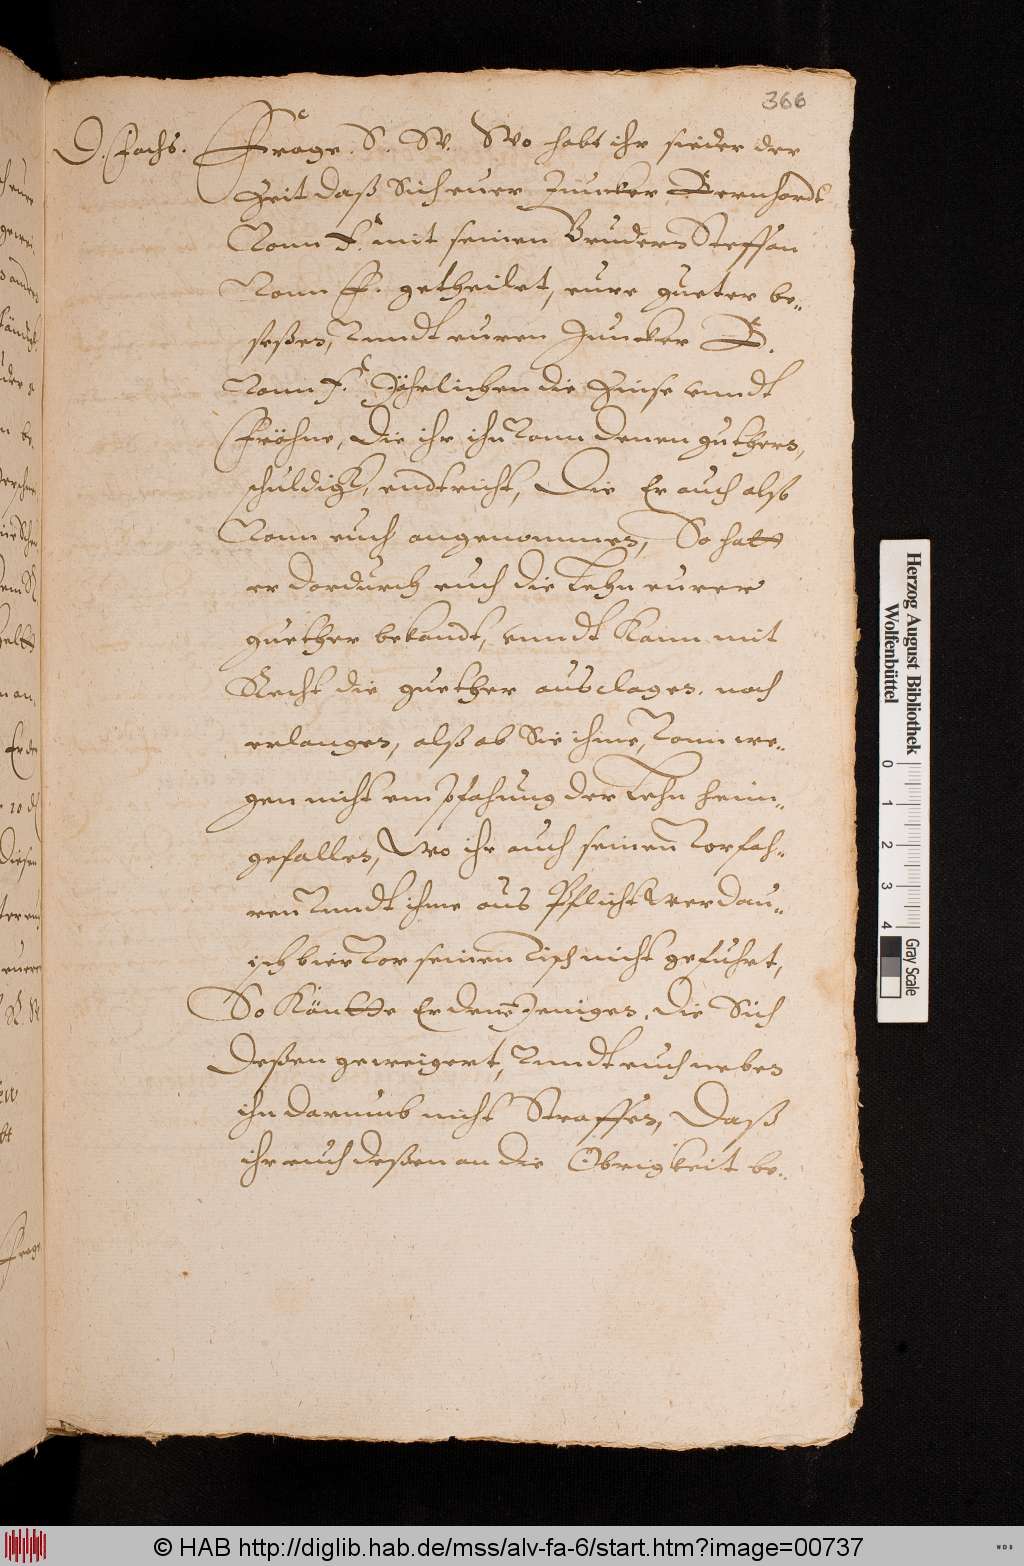 366
D. Fachs. Frage. S. W. Wo habt ihr sieder der
Zeit daß Sich euer Juncker Bernhardt
Vonn F. mit seinen Bruders Steffan
Vonn F. getheilet, eure gueter be-
seßes, Vnndt euren Juncker B.
Vonn F. Jährlichen die Zinse vnndt
Fröhne, die ihr ihn Vonn denen guthers,
schuldigk, endtricht, Die Er auch also
Vonn euch angenommes, So hatt
er dardurch euch die Lehn eurer
guether bekandt, vnndt Kann mit
Recht die guether ausclages. noch
erlanges, alß ob Sie ihme, Vonn we-
gen nicht empfahung der Lehn heim-
gefalles, Wo ihr auch seinenn Vorfah-
ren Vnndt ihme aus Pflicht Werdau-
isch bier Vor seinen Tisch nicht gefuhrt,
So Köntte Er denn Jeniges, die Sich
deßen geweigert, Vnndt euch nebes
ihn darumb nicht Straffes, Daß
ihr euch deßen an die Obrigkeit be-
Herzog August Bibliothek
Wolfenbüttel
0 1 2 3 4
Gray Scale
© HAB http://diglib.hab.de/mss/alv-fa-6/start.htm?image=00737